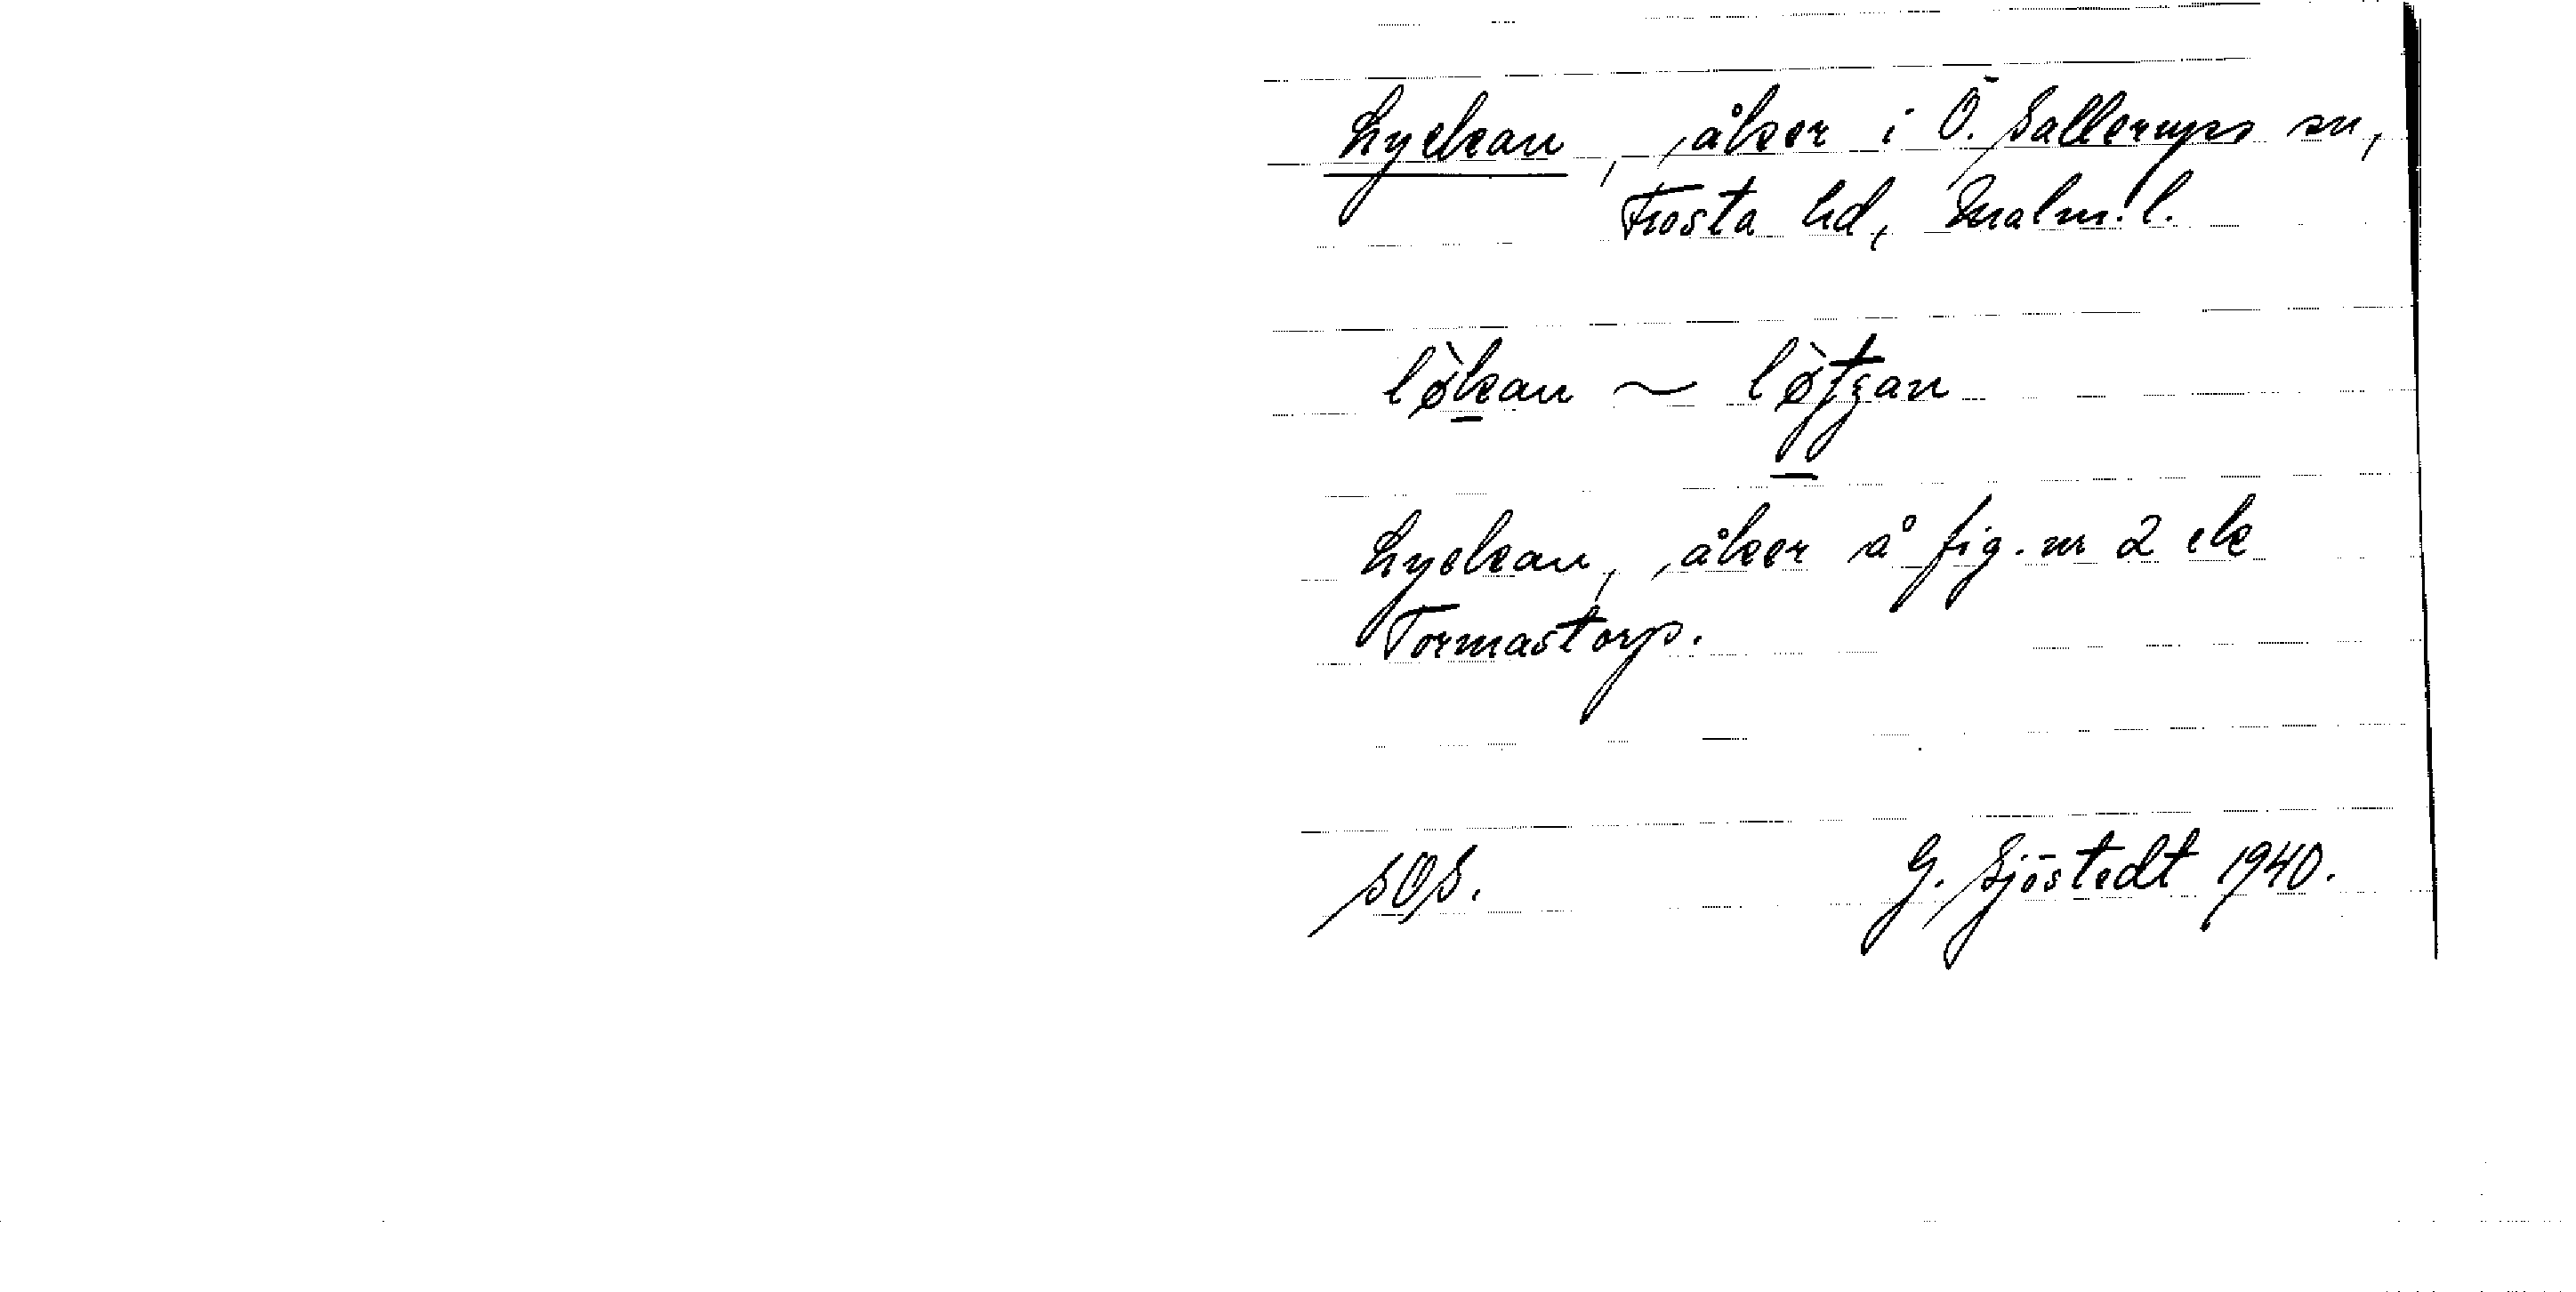 Lyckan, åker i Ö. Sallerups sn,
Frosta hd, Malm. l.
lø̀kan ~ lø̀tʒan
Lyckan, åker å fig. nr 2 ek
Tormastorp.
SOS. G. Sjöstedt 1940.